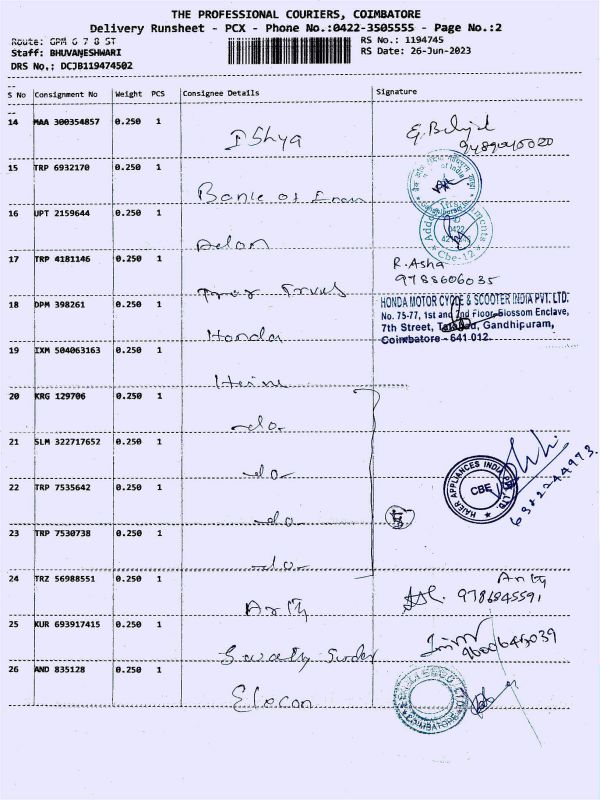 THE PROFESSIONAL COURIERS, COIMBATORE
Delivery Runsheet - PCX - Phone No.:0422-3505555 - Page No.:2
Route: GPM 6 7 8 ST RS No.: 1194745
Staff: BHUVANESHWARI RS Date: 26-Jun-2023
DRS No.: DCJB119474502
S No Consignment No Weight PCS Consignee Details Signature
14 MAA 300354857 0.250 1
Ishya
15 TRP 6932170 0.250 1
Bank of
16 UPT 2159644 0.250 1
17 TRP 4181146 0.250 1 R. Asha
9788606035
18 DPM 398261 0.250 1 HONDA MOTOR CYCLE & SCOOTER INDIA PVT. LTD.
No. 75-77, 1st and 2nd Floor, Blossom Enclave,
7th Street, Tatabad, Gandhipuram,
Coimbatore - 641 012.
Honda
19 IXM 504063163 0.250 1
20 KRG 129706 0.250 1
-do-
21 SLM 322717652 0.250 1
HAIER APPLIANCES INDIA PVT LTD
CBE
-do-
22 TRP 7535642 0.250 1
-do-
23 TRP 7530738 0.250 1
-do-
24 TRZ 56988551 0.250 1
9786945591
25 KUR 693917415 0.250 1
9600645039
26 AND 835128 0.250 1
COIMBATORE
Elocon